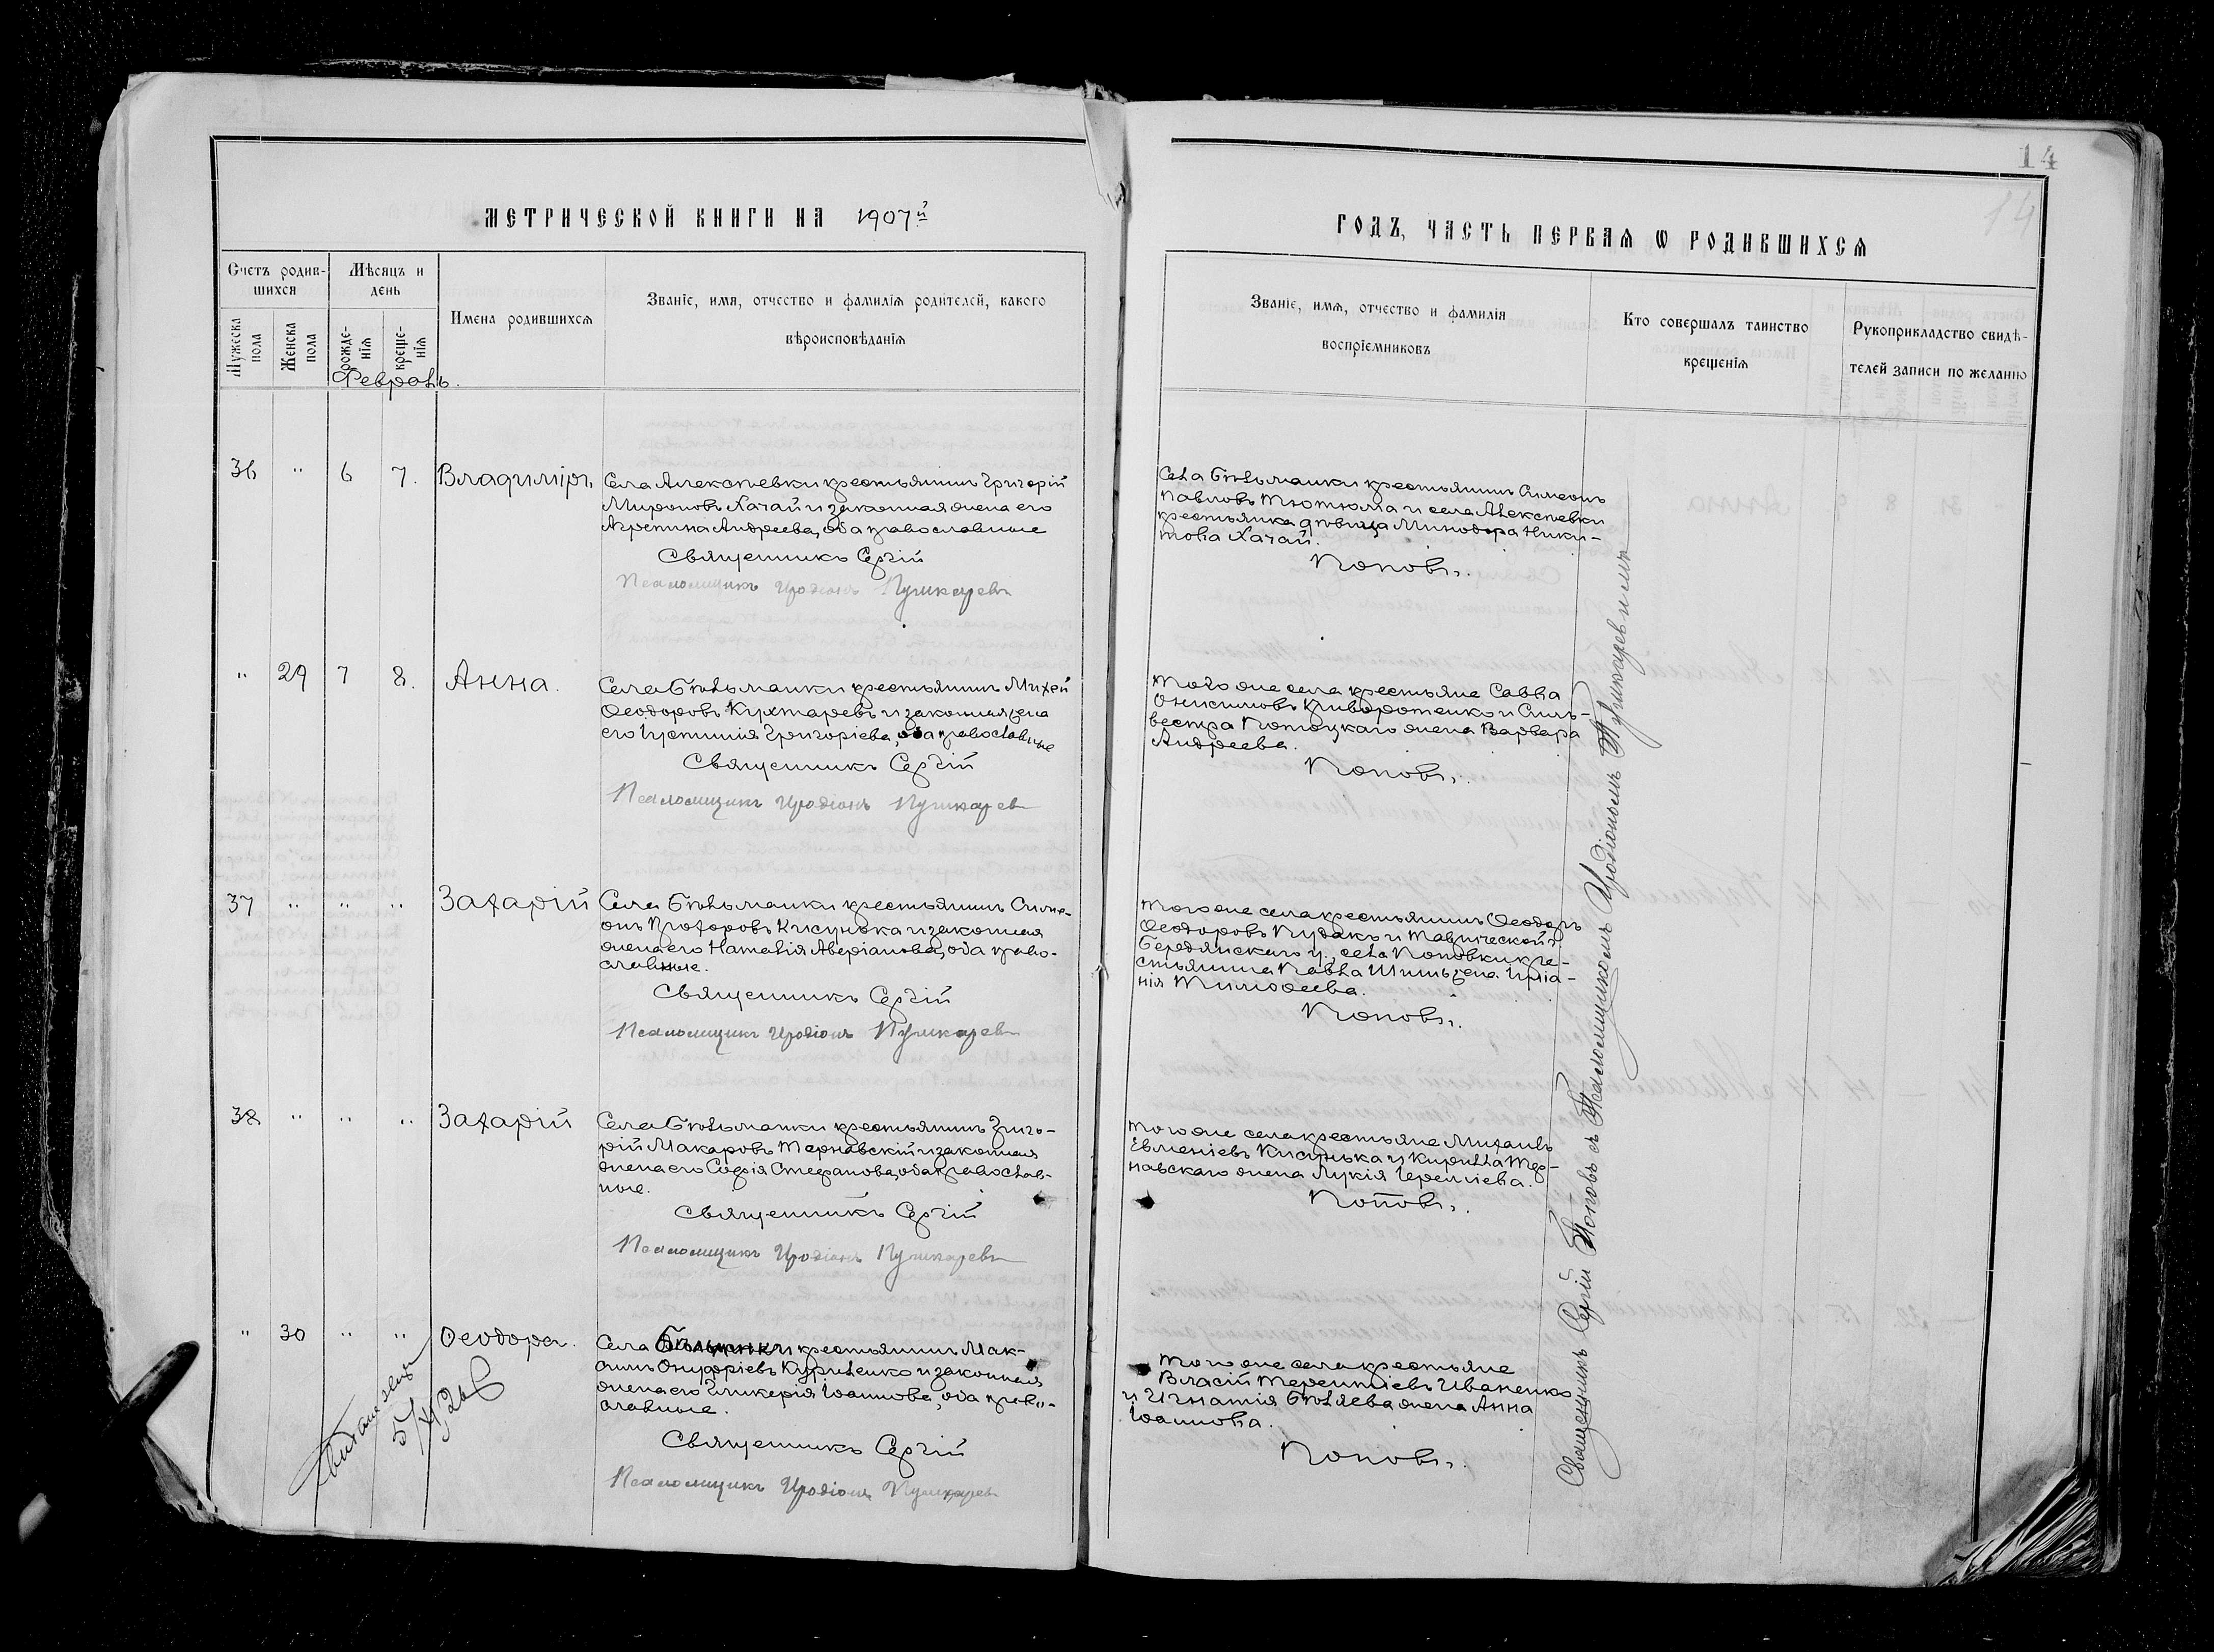 14
14
МЕТРИЧЕСКОЙ КНИГИ НА 1907й
ГОДЪ, ЧАСТЬ ПЕРВАЯ Ѡ РОДИВШИХСЯ
Счетъ родив-
шихся
Мѣсяцъ и
день
Мужеска
пола
Женска
пола
рожде-
нія
креще-
нія
Имена родившихся
Званіе, имя, отчество и фамилія родителей, какого
вѣроисповѣданія
Званіе, имя, отчество и фамилія
воспріемниковъ
Кто совершалъ таинство
крещенія
Рукоприкладство свидѣ-
телей записи по желанію
Февраль.
36 " 6 7. Владиміръ
Села Алексѣевки крестьянинъ Григорій
Мироновъ Хачай и законная жена его
Агрепина Андреева, оба православные
Священникъ Сергій
Псаломщикъ Иродіонъ Пушкаревъ
Села Бѣльманки крестьянинъ Симеонъ
Павловъ Тютюма и села Алексѣевки
крестьянка дѣвица Минодора Ники-
това Хачай.
Поповъ.
" 29 7 8. Анна.
Села Бѣльманки крестьянинъ Михей
Ѳеодоровъ Кухтаревъ и законная жена
его Іустинія Григоріева, оба православные
Священникъ Сергій
Псаломщикъ Иродіонъ Пушкаревъ
того же села крестьяне Савва
Онисимовъ Криворотенко и Силь-
вестра Потоцкаго жена Варвара
Андреева.
Поповъ.
37 " " " Захарій
Села Бѣльманки крестьянинъ Симе-
онъ Прохоровъ Кисунька и законная
жена его Наталія Аверіанова, оба право-
славные.
Священникъ Сергій
Псаломщикъ Иродіонъ Пушкаревъ
того же села крестьянинъ Ѳеодоръ
Ѳеодоровъ Пудакъ и Таврической г.
Бердянскаго у., села Поповки кре-
стьянина Павла жена
Тимоѳеева.
Поповъ.
38 " " " Захарій
Села Бѣльманки крестьянинъ Григо-
рій Макаровъ Тернавскій и законная
жена его Софія Стефанова, оба православ-
ные.
Священникъ Сергій
Псаломщикъ Иродіонъ Пушкаревъ
того же села крестьяне Михаилъ
Евменіевъ Кисунька и Кирилла Тер-
навскаго жена Лукія Іереміева.
Поповъ.
" 30 " " Ѳеодора.
Села Бѣльманки крестьянинъ Мак-
симъ Онуфріевъ Куриленко и законная
жена его Гликерія Іоаннова, оба право-
славные.
Священникъ Сергій
Псаломщикъ Иродіонъ Пушкаревъ
того же села крестьяне
Власій Терентіевъ Иваненко
и Игнатія Бѣляева жена Анна
Іоаннова.
Поповъ.
Священникъ Сергій Поповъ съ Псаломщикомъ Иродіономъ Пушкаревымъ